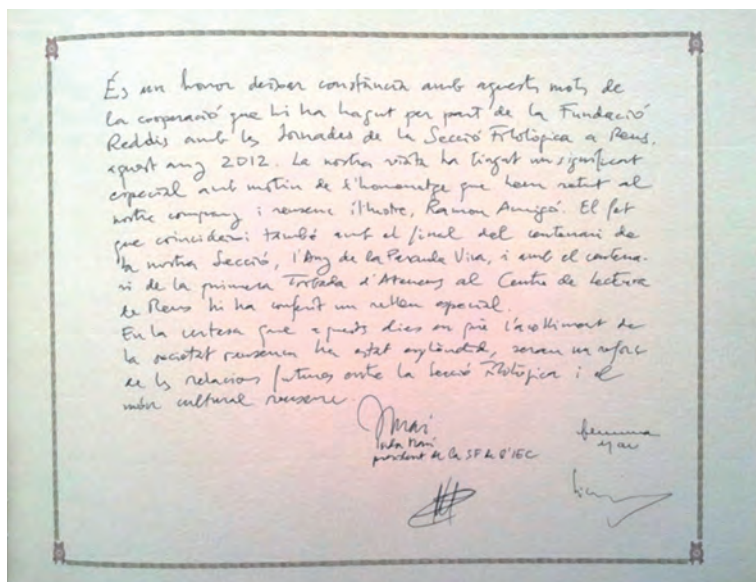 És un honor deixar constància amb aquests mots de
la cooperació que hi ha hagut per part de la Fundació
Reddis amb les Jornades de la Secció Filològica a Reus,
aquest any 2012. La nostra visita ha tingut un significat
especial amb motiu de l'homenatge que hem retut al
nostre company i reusenc il·lustre, Ramon Amigó. El fet
que coincideixi també amb el final del centenari de
la nostra Secció, l'Any de la Paraula Viva, i amb el centena-
ri de la primera Trobada d'Ateneus al Centre de Lectura
de Reus hi ha conferit un relleu especial.
En la certesa que aquests dies en què l'acolliment de
la societat reusenca ha estat esplèndid, seran un reforç
de les relacions futures entre la Secció Filològica i el
món cultural reusenc.
Isidor Marí
president de la SF de l'IEC